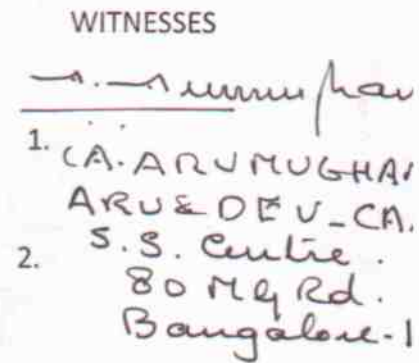 WITNESSES
1. CA. ARUMUGHAN
ARU & DEV - CA.
2. S.S. Centre.
80 MG Rd.
Bangalore-1